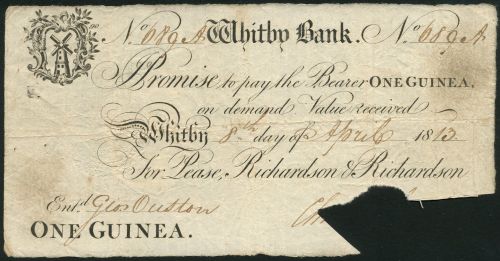 No. 689 A Whitby Bank. No. 689 A
I Promise to pay the Bearer ONE GUINEA,
on demand Value received
Whitby 8th day of April 1813
For Pease, Richardson & Richardson
Ent.d Geo Ouston
ONE GUINEA.